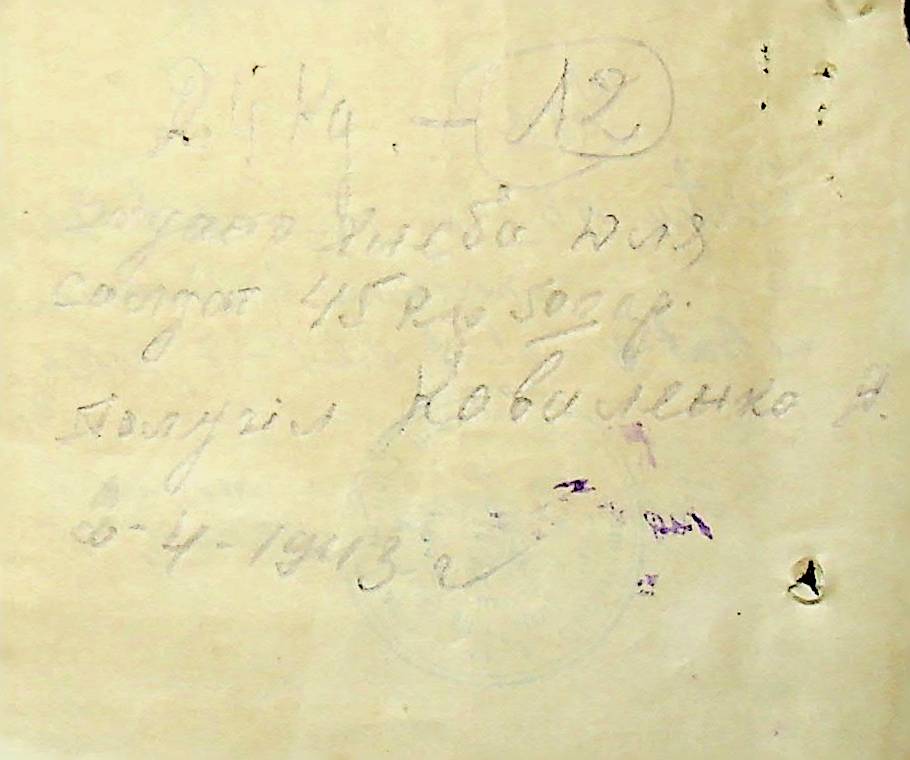 24 кg. - 12
видано хлеба для
солдат 45 500 гр.
Получил Коваленко Н.
8-4-1943 г